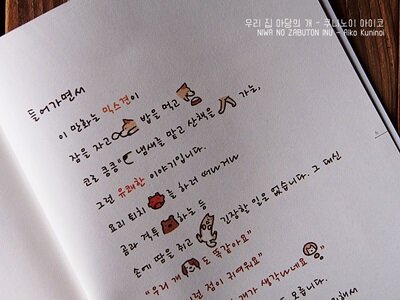 우리 집 마당의 개 - 쿠니노이 아이코
NIWA NO ZABUTON INU - Aiko Kuninoi
들어가면서
이 만화는 믹스견이
잠을 자고 밥을 먹고
코로 킁킁 냄새를 맡고 산책을 가는,
그런 유쾌한 이야기입니다.
요리 퇴치를 하러
곰과 격투하는 등
손에 땀을 쥐고 긴장할 일은 없습니다. 그 대신
"우리 개도 똑같아요"
이런 점이 귀여워요"
개가 생각나네요